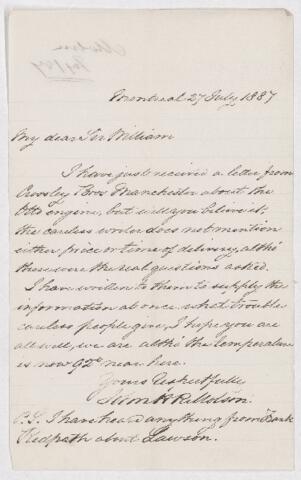 Montreal 27 July 1887
My dear Sir William
I have just received a letter from
Crossley Bros Manchester about the
Otto engine, but will you believe it,
the careless writer does not mention
either price or time of delivery, altho'
these were the real questions asked.
I have written to them to supply the
information at once. what trouble
careless people give, I hope you are
all well, we are altho the temperature
is now 92° near here.
Yours Respectfully
P.S. I have heard anything from Frank
Redpath about Lawson.